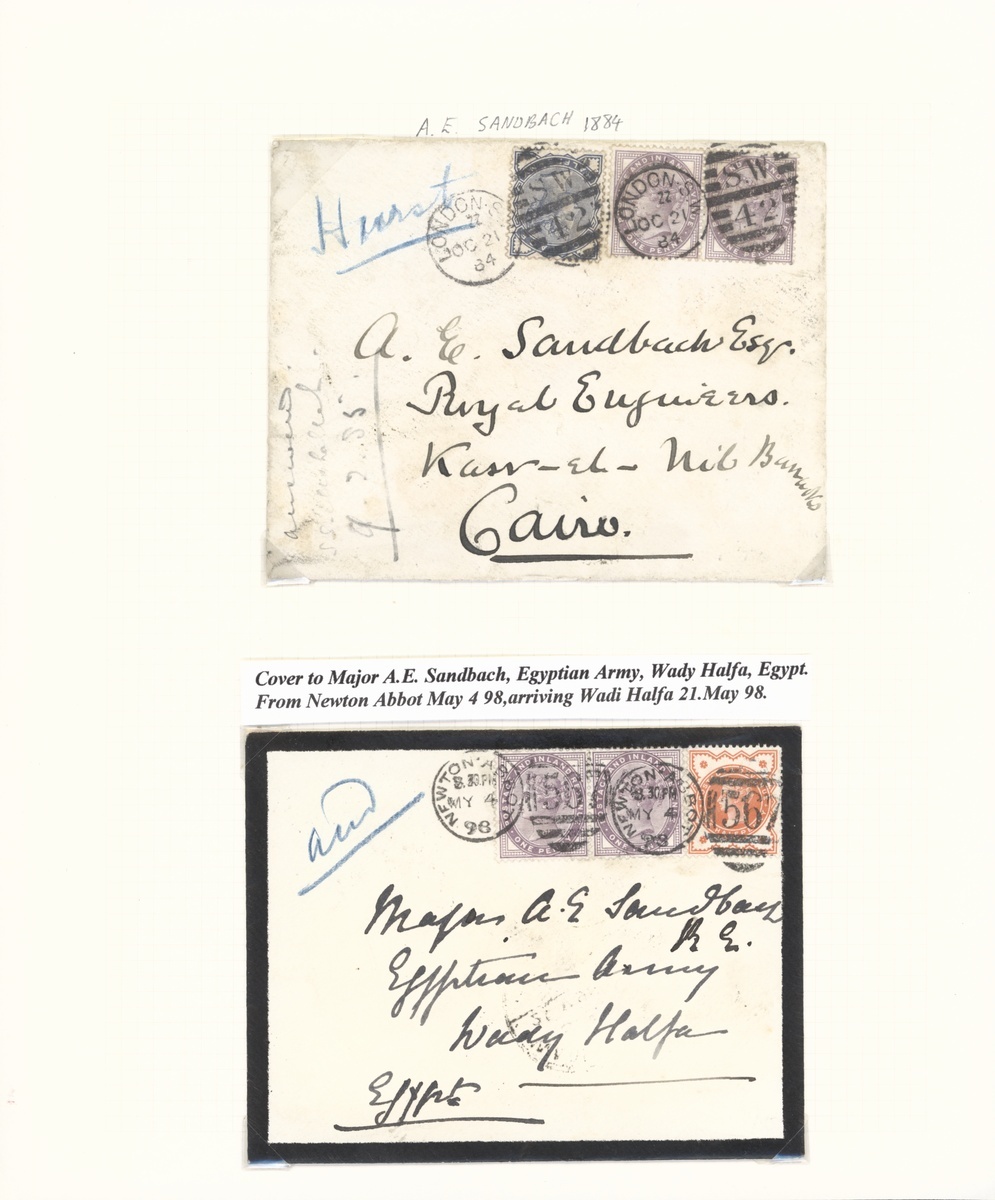 A. E. SANDBACH 1884
Hearst
LONDON·S.W
ZZ
OC 21
84
S.W
42
LONDON·S.W
ZZ
OC 21
84
S.W
42
ONE PENNY
A. E. Sandbach Esqr.
Royal Engineers.
Kasr-el-Nil Barracks
Cairo.
answered
9.7.85.
Cover to Major A.E. Sandbach, Egyptian Army, Wady Halfa, Egypt.
From Newton Abbot May 4 98,arriving Wadi Halfa 21.May 98.
and
NEWTON·ABBOT
8.30PM
MY 4
98
NEWTON·ABBOT
8.30PM
MY 4
98
ONE PENNY
56
Major A.E Sandbach
R.E.
Egyptian Army
Wady Halfa
Egypt